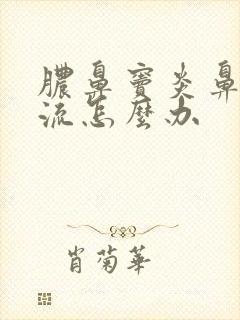 膿鼻竇炎鼻
流怎麼办
肖菊華